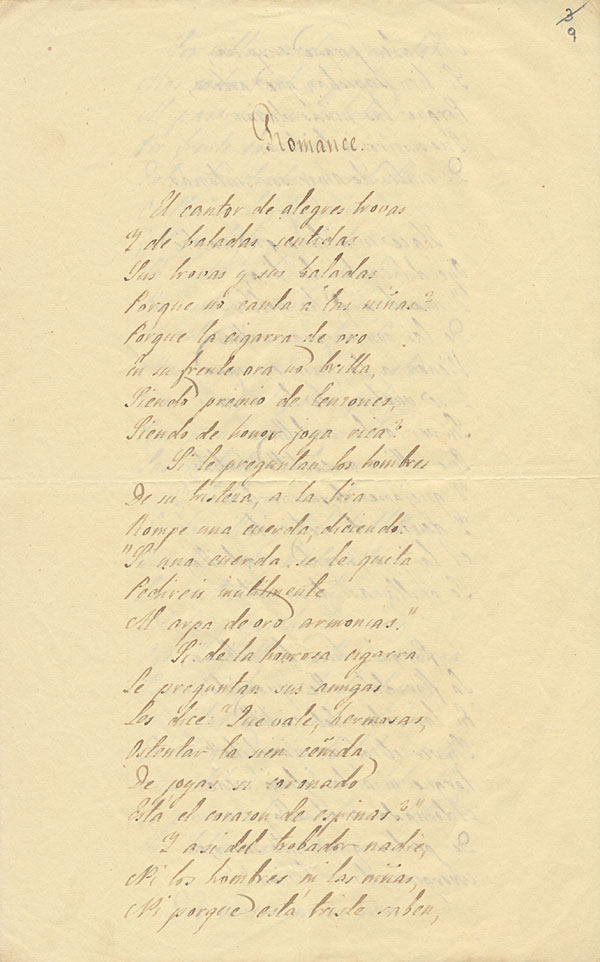 3
9
Romance.
El cantor de alegres trovas
Y de baladas sentidas
Sus trovas y sus baladas
Porque no canta á las niñas?
Porque la cigarra de oro
En su frente ora no brilla,
Siendo premio de tenzones,
Siendo de honor joya rica?
Si le preguntan los hombres
De su tristeza, a la lira
Rompe una cuerda, diciendo:
"Si una cuerda se le quita
Pedireis inutilmente
Al arpa de oro armonias."
Si de la honrosa cigarra
Le preguntan sus amigas
Les dice: "Que vale, hermosas,
Ostentar la sien ceñida
De joyas si coronado
Está el corazon de espinas?"
Y asi del trobador nadie,
Ni los hombres ni las niñas,
Ni porque está triste saben,